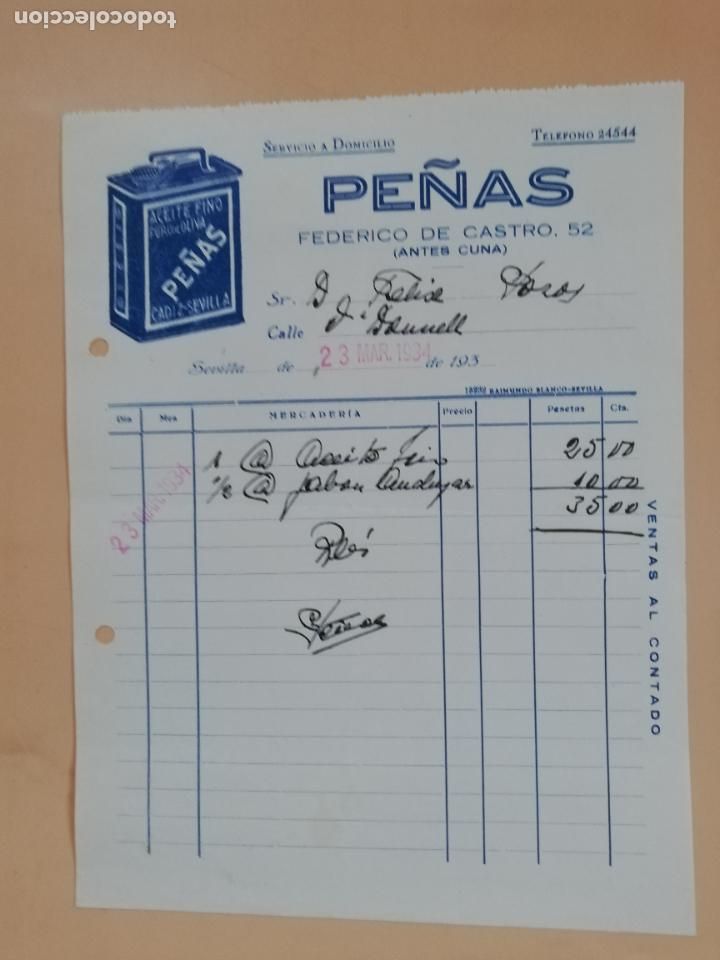 todocoleccion
SERVICIO A DOMICILIO
TELEFONO 24544
PEÑAS
FEDERICO DE CASTRO, 52
(ANTES CUNA)
ACEITE FINO
PURO DE OLIVA
PEÑAS
CADIZ-SEVILLA
Sr. D. Felix
Calle O'Donnell
Sevilla de 23 MAR. 1934 de 193
RAIMUNDO BLANCO-SEVILLA
Día Mes MERCADERÍA Precio Pesetas Cts.
1 @ Aceite fino 25 00
1/2 @ jabon Andujar 10 00
35 00
23 MAR. 1934
Peñas
VENTAS AL CONTADO